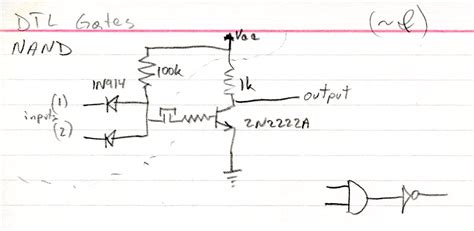 DTL Gates
NAND
Vcc
100k
1k
1N914
(1)
inputs
(2)
output
2N2222A